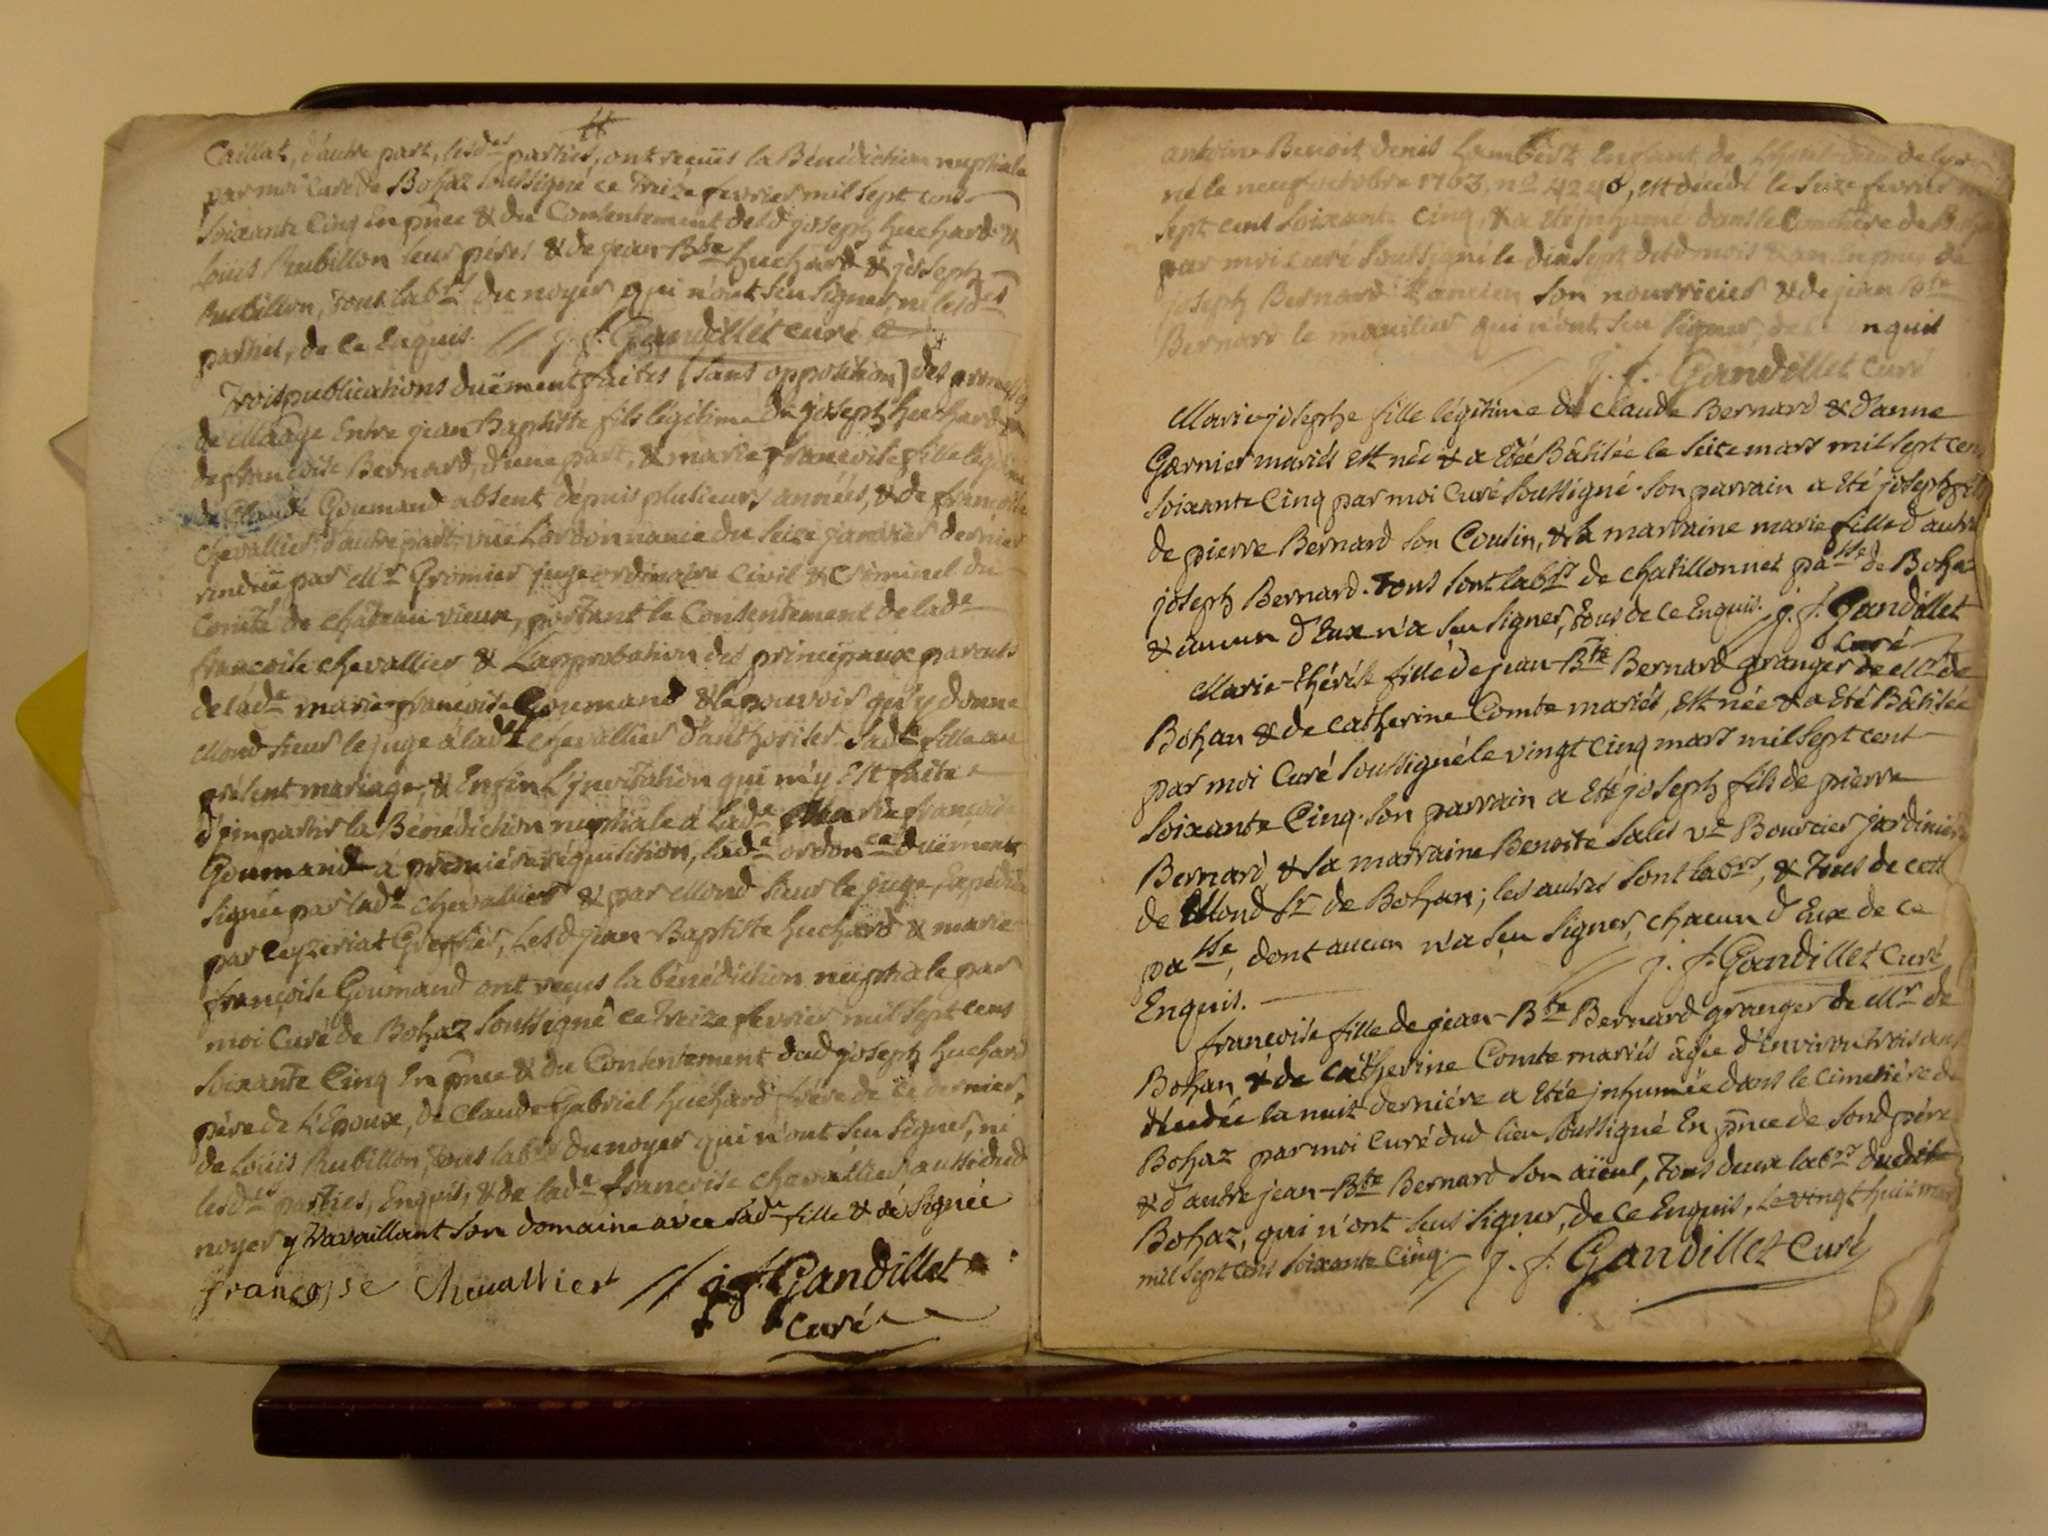 Caillat, d'autre part, lesd.es parties, ont reçûes la Bénédiction nuptiale
par moi Curé de Bohaz soussigné ce Treize fevrier mil sept cens
soixante Cinq En pñce & du Consentement desd joseph huchard &
Loüis Rubillon leur peres & de jean-Bte huchard & joseph
Rubillon, tous labrs du noyer qui n'ont sçu signer, ni lesdes
parties, de ce Enquis. // j. f. Gandillet curé
Trois publications duëment faites (sans opposition) des promesses
de Mariage Entre jean Baptiste fils légitime de joseph huchard &
de françoise Bernard, d'une part, & marie françoise fille légitime
de Claude Goumand absent dépuis plusieurs années, & de françoise
chevallier, d'autre part. vuë L'ordonnance du seize janvier dernier
renduë par Mr Gromier juge ordinaire Civil & Criminel du
Comté de Château vieux, portant le Consentement de lade
françoise chevallier & L'approbation des principaux parents
de lade marie françoise Goumand & le pouvoir qu'y donne
Mond sieur le juge à lade chevallier d'authoriser sade fille au
présent mariage, & Enfin L'jnvitation qui m'y Est faite
d'jmpartir la Bénédiction nuptiale à lade Marie françoise
Goumand à premiére réquisition, lade ordonce duëment
signée par lade chevallier & par Mond sieur le juge, Expédiée
par Ceyzeriat Greffier, Lesd jean Baptiste huchard & marie
françoise Goumand ont reçus la bénédiction nuptiale par
moi Curé de Bohaz soussigné ce Treize fevrier mil sept cens
soixante Cinq En pñce & du Consentement dud joseph huchard
pére de L'Epoux, de Claude Gabriel huchard frére de ce dernier,
de Loüis Rubillon, tous labrs du noyer qui n'ont sçu signer, ni
lesdes parties, Enquis, & de lade françoise chevallier aussi dud
noyer y travaillant son domaine avec sade fille & ca signée
françoyse Cheuallier // j. f. Gandillet
Curé
antoine Benoit denis Lambert Enfant de L'hotel-dieu de Lyon
né le neuf octobre 1763, no 4240, est décédé le seize fevrier mil
sept cent soixante Cinq, & a été jnhumé dans le Cimetière de Bohaz
par moi curé soussigné le dix sept dud mois & an En pñce de
joseph Bernard L'ancien son nourricier & de jean Bte
Bernard le mauilier qui n'ont sçu signer, de ce Enquis
// j. f. Gandillet curé
Marie josephe fille légitime de Claude Bernard & d'anne
Garnier mariés Est née & a Etée Bâtisée le seize mars mil sept cens
soixante Cinq par moi Curé soussigné. son parrain a Eté joseph fils
de pierre Bernard son Cousin, & sa marraine marie fille d'autre
joseph Bernard. Tous sont labrs de chatillonnet passe de Bohaz
& aucun d'Eux n'a sçu signer, tous de ce Enquis. // j. f. Gandillet
curé
Marie-thérése fille de jean-Bte Bernard granger de Mr de
Bohan & de Catherine Comte mariés, Est née & a Eté Bâtisée
par moi Curé soussigné le vingt cinq mars mil sept cent
soixante Cinq. son parrain a Eté joseph fils de pierre
Bernard & sa marraine Benoite Sales ve Bourcier jardiniére
de Mond Sr de Bohan; les autres sont labrs, & Tous de cette
passe, dont aucun n'a sçu signer, chacun d'Eux de ce
Enquis. // j. f. Gandillet Curé
françoise fille de jean-Bte Bernard granger de Mr de
Bohan & de Catherine Comte mariés âgée d'environ trois ans
décédée la nuit derniére a Etée jnhumée dans le Cimetiére de
Bohaz par moi Curé dud lieu soussigné En pñce de sond pére
& d'autre jean-Bte Bernard son aïeul, Tous deux labrs dudit
Bohaz, qui n'ont sçus signer, de ce Enquis, le vingt huit mars
mil sept cens soixante Cinq. // j. f. Gandillet Curé